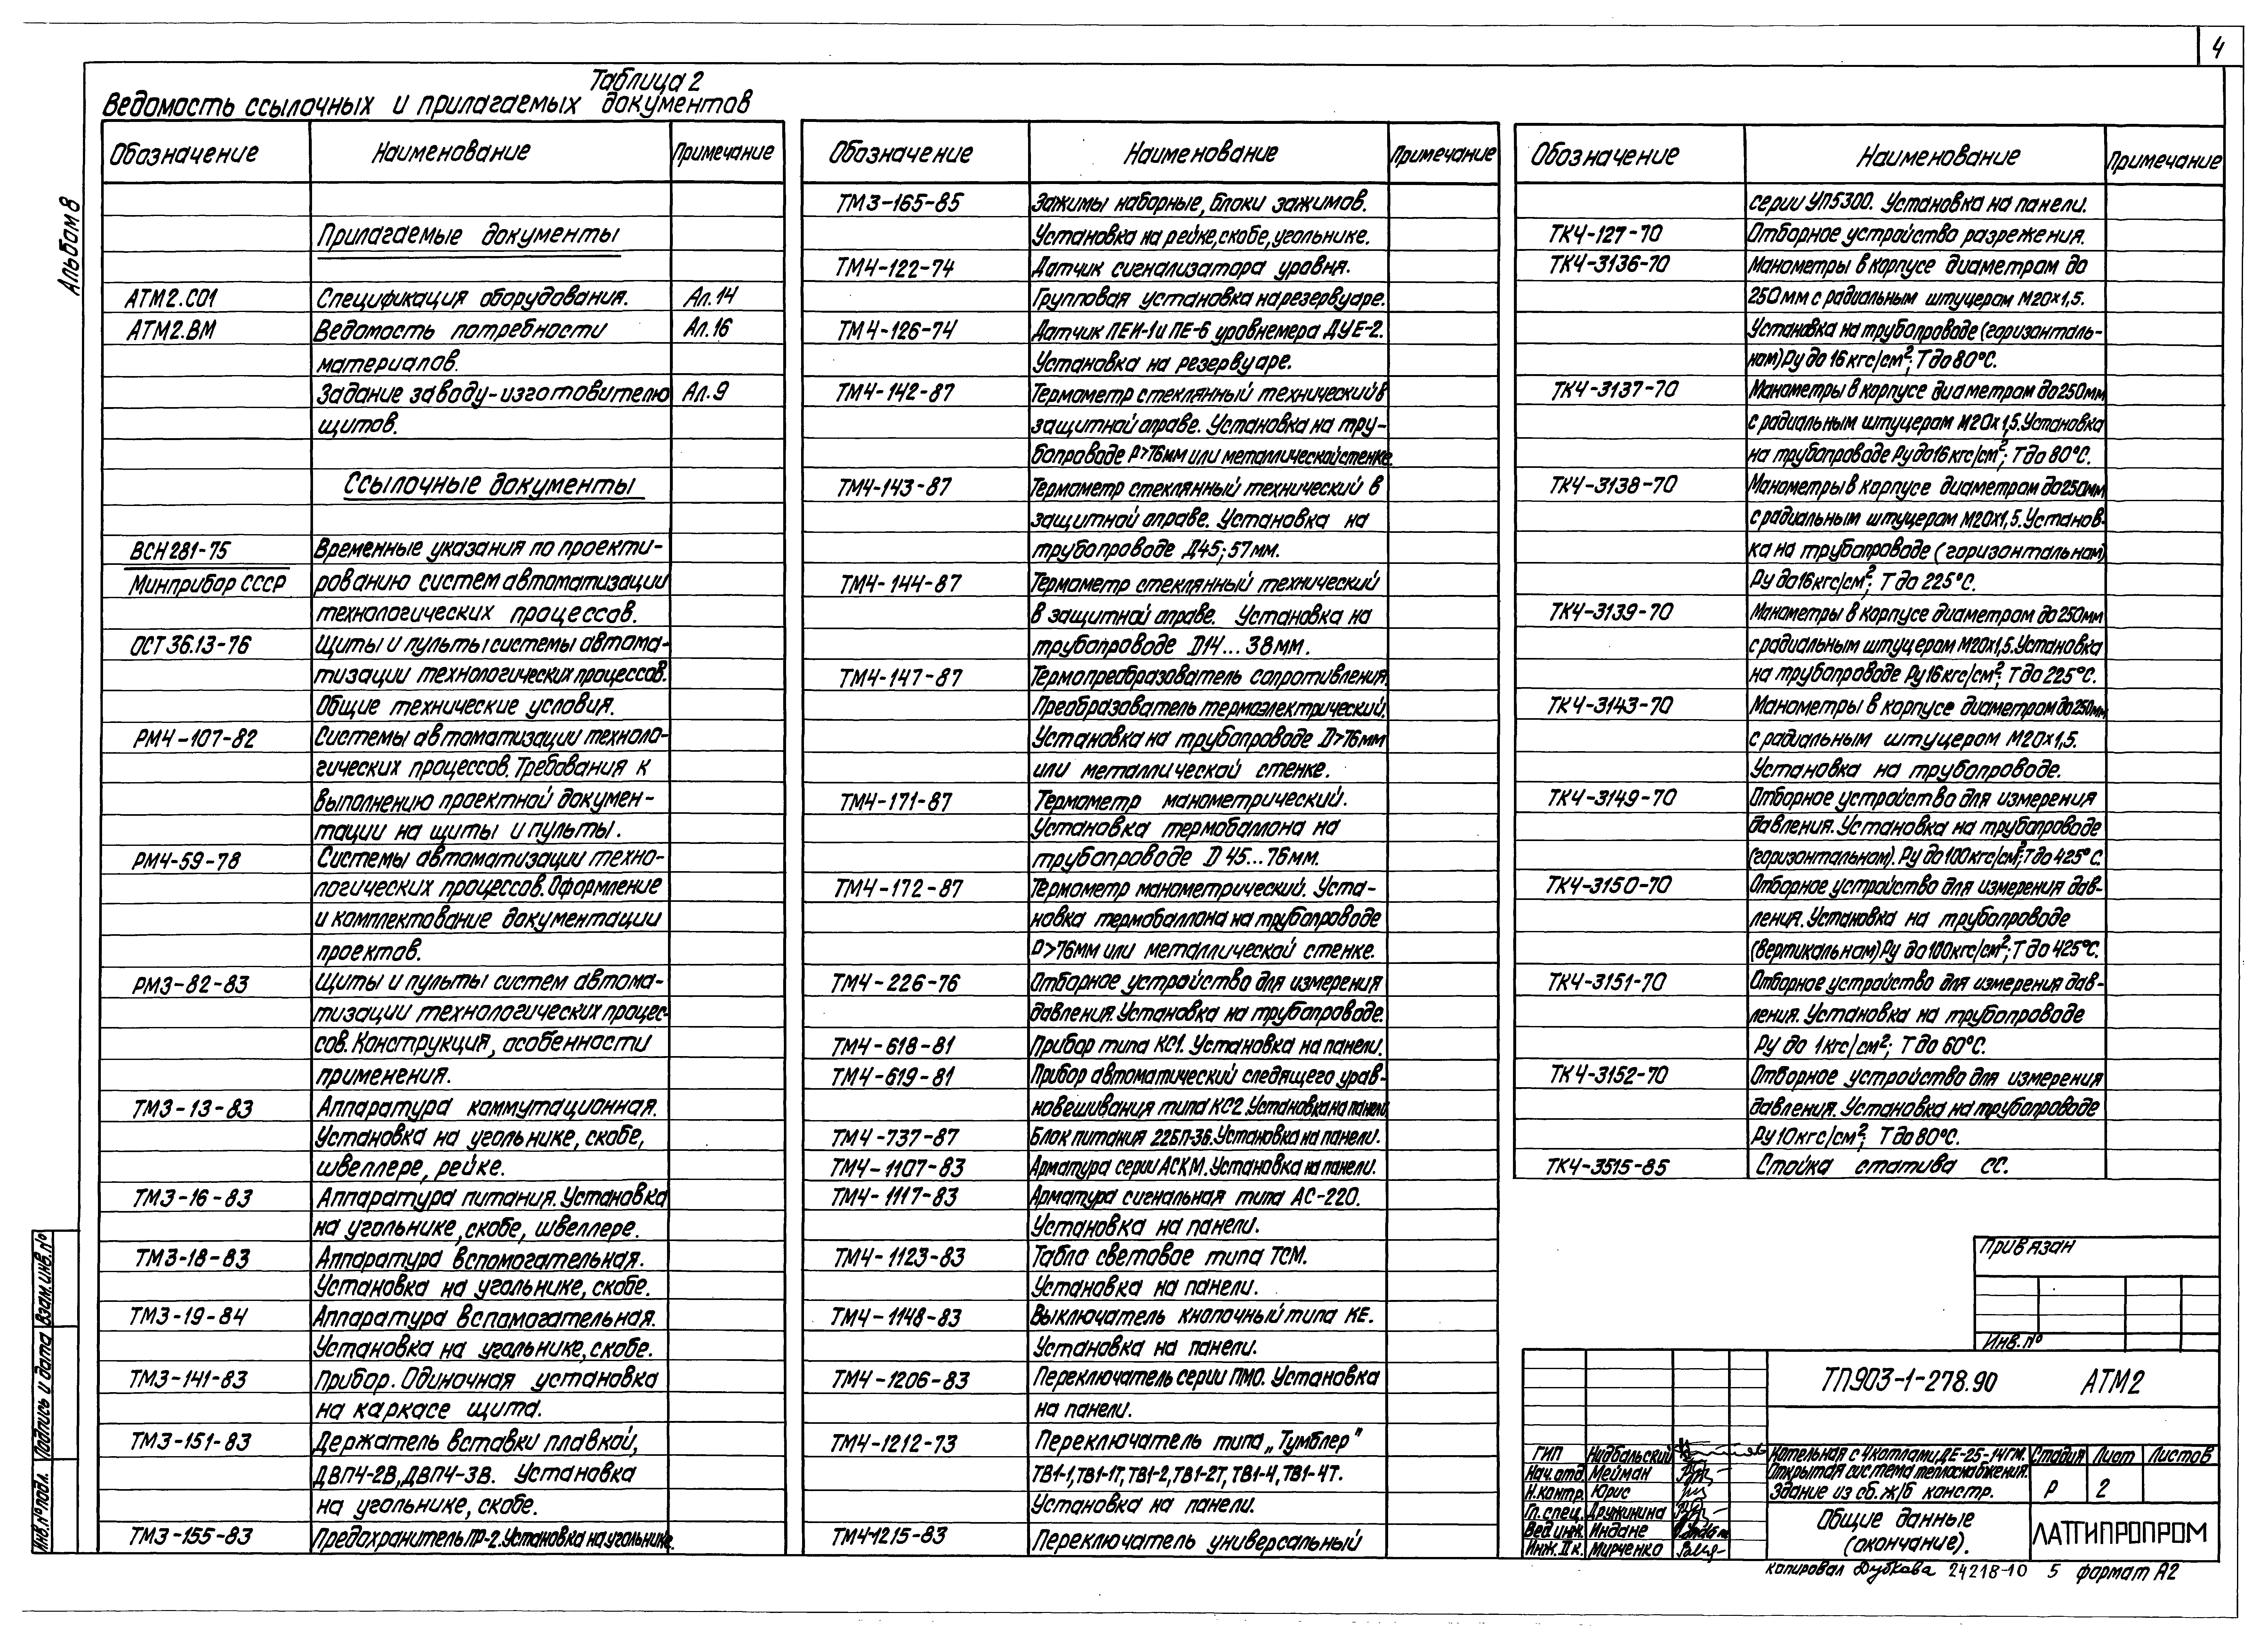 4
Альбом 8
Таблица 2
Ведомость ссылочных и прилагаемых документов
Обозначение Наименование Примечание
Прилагаемые документы
АТМ2.СО1 Спецификация оборудования. Ал.14
АТМ2.ВМ Ведомость потребности Ал.16
материалов.
Задание заводу-изготовителю Ал.9
щитов.
Ссылочные документы
ВСН 281-75 Временные указания по проекти-
Минприбор СССР рованию систем автоматизации
технологических процессов.
ОСТ 36.13-76 Щиты и пульты системы автома-
тизации технологических процессов.
Общие технические условия.
РМ4-107-82 Системы автоматизации техноло-
гических процессов. Требования к
выполнению проектной докумен-
тации на щиты и пульты.
РМ4-59-78 Системы автоматизации техно-
логических процессов. Оформление
и комплектование документации
проектов.
РМ3-82-83 Щиты и пульты систем автома-
тизации технологических процес-
сов. Конструкция, особенности
применения.
ТМ3-13-83 Аппаратура коммутационная.
Установка на угольнике, скобе,
швеллере, рейке.
ТМ3-16-83 Аппаратура питания. Установка
на угольнике, скобе, швеллере.
ТМ3-18-83 Аппаратура вспомогательная.
Установка на угольнике, скобе.
ТМ3-19-84 Аппаратура вспомогательная.
Установка на угольнике, скобе.
ТМ3-141-83 Прибор. Одиночная установка
на каркасе щита.
ТМ3-151-83 Держатель вставки плавкой,
ДВП4-2В, ДВП4-3В. Установка
на угольнике, скобе.
ТМ3-155-83 Предохранитель ПР-2. Установка на угольнике.
Обозначение Наименование Примечание
ТМ3-165-85 Зажимы наборные, блоки зажимов.
Установка на рейке, скобе, угольнике.
ТМ4-122-74 Датчик сигнализатора уровня.
Групповая установка на резервуаре.
ТМ4-126-74 Датчик ПЕИ-1 и ПЕ-6 уровнемера ДУЕ-2.
Установка на резервуаре.
ТМ4-142-87 Термометр стеклянный технический в
защитной оправе. Установка на тру-
бопроводе D>76мм или металлической стенке.
ТМ4-143-87 Термометр стеклянный технический в
защитной оправе. Установка на
трубопроводе Д45; 57мм.
ТМ4-144-87 Термометр стеклянный технический
в защитной оправе. Установка на
трубопроводе D14...38мм.
ТМ4-147-87 Термопреобразователь сопротивления.
Преобразователь термоэлектрический.
Установка на трубопроводе D>76мм
или металлической стенке.
ТМ4-171-87 Термометр манометрический.
Установка термобаллона на
трубопроводе D 45...76мм.
ТМ4-172-87 Термометр манометрический. Уста-
новка термобаллона на трубопроводе
D>76мм или металлической стенке.
ТМ4-226-76 Отборное устройство для измерения
давления. Установка на трубопроводе.
ТМ4-618-81 Прибор типа КС1. Установка на панели.
ТМ4-619-81 Прибор автоматический следящего урав-
новешивания типа КС2. Установка на панели
ТМ4-737-87 Блок питания 22БП-36. Установка на панели.
ТМ4-1107-83 Арматура серии АСКМ. Установка на панели.
ТМ4-1117-83 Арматура сигнальная типа АС-220.
Установка на панели.
ТМ4-1123-83 Табло световое типа ТСМ.
Установка на панели.
ТМ4-1148-83 Выключатель кнопочный типа КЕ.
Установка на панели.
ТМ4-1206-83 Переключатель серии ПМО. Установка
на панели.
ТМ4-1212-73 Переключатель типа „Тумблер"
ТВ1-1, ТВ1-1Т, ТВ1-2, ТВ1-2Т, ТВ1-4, ТВ1-4Т.
Установка на панели.
ТМ4-1215-83 Переключатель универсальный
Обозначение Наименование Примечание
серии УП5300. Установка на панели.
ТК4-127-70 Отборное устройство разрежения.
ТК4-3136-70 Манометры в корпусе диаметром до
250мм с радиальным штуцером М20×1,5.
Установка на трубопроводе (горизонталь-
ном) Ру до 16 кгс/см²; Т до 80°С.
ТК4-3137-70 Манометры в корпусе диаметром до 250мм
с радиальным штуцером М20×1,5. Установка
на трубопроводе Ру до 16 кгс/см²; Т до 80°С.
ТК4-3138-70 Манометры в корпусе диаметром до 250мм
с радиальным штуцером М20×1,5. Установ-
ка на трубопроводе (горизонтальном)
Ру до 16кгс/см²; Т до 225°С.
ТК4-3139-70 Манометры в корпусе диаметром до 250мм
с радиальным штуцером М20×1,5. Установка
на трубопроводе Ру 16 кгс/см²; Т до 225°С.
ТК4-3143-70 Манометры в корпусе диаметром до 250мм
с радиальным штуцером М20×1,5.
Установка на трубопроводе.
ТК4-3149-70 Отборное устройство для измерения
давления. Установка на трубопроводе
(горизонтальном). Ру до 100кгс/см²; Т до 425°С.
ТК4-3150-70 Отборное устройство для измерения дав-
ления. Установка на трубопроводе
(вертикальном) Ру до 100кгс/см²; Т до 425°С.
ТК4-3151-70 Отборное устройство для измерения дав-
ления. Установка на трубопроводе
Ру до 1кгс/см²; Т до 60°С.
ТК4-3152-70 Отборное устройство для измерения
давления. Установка на трубопроводе
Ру 10кгс/см²; Т до 80°С.
ТК4-3515-85 Стойка статива СС.
Привязан
Инв.№
ТП903-1-278.90 АТМ2
ГИП Нидбальский
Нач.отд Мейман
Н.контр. Юрис
Гл.спец. Дружинина
Вед.инж. Индане
Инж.II к. Мирченко
Котельная с 4 котлами ДЕ-25-14ГМ.
Открытая система теплоснабжения.
Здание из сб. ж/б констр.
Стадия Лист Листов
Р 2
Общие данные
(окончание).
ЛАТГИПРОПРОМ
Взам.инв.№
Подпись и дата
Инв.№подл.
копировал Дубкова 24218-10 5 формат А2